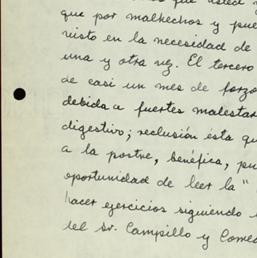 que usted
que por malhechos y pue
visto en la necesidad de
una y otra vez. El tercero
de casi un mes de forzo
debida a fuertes malestar
digestivo; reclusión esta qu
a la postre, benéfica, pu
oportunidad de leer la "
hacer ejercicios siguiendo
del Sr. Campillo y Correa